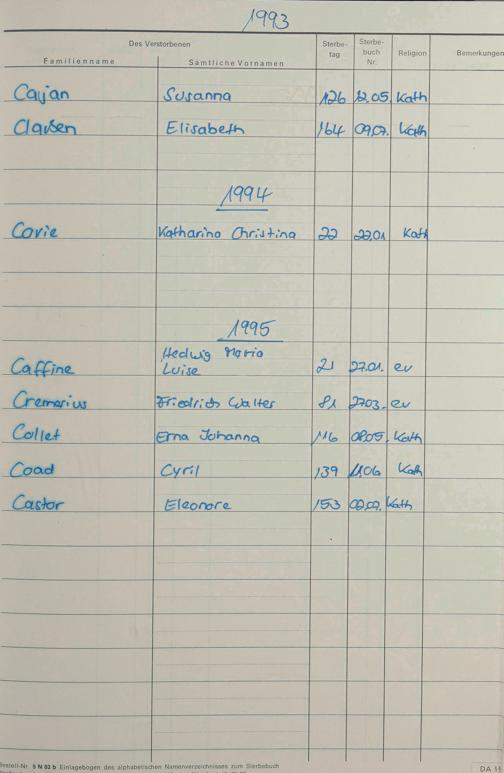 1993
Des Verstorbenen
Familienname Sämtliche Vornamen Sterbe-tag Sterbe-buch Nr. Religion Bemerkungen
Cajan Susanna 126 12.05. Kath
Clausen Elisabeth 164 09.07. Kath
1994
Corie Katharina Christina 22 22.01 Kath
1995
Hedwig Maria
Caffine Luise 21 27.01. ev
Cremerius Friedrich Walter 81 27.03. ev
Collet Erna Johanna 116 08.05. Kath
Coad Cyril 139 11.06 Kath
Castor Eleonore 153 Kath
Bestell-Nr. S N 83 b Einlagebogen des alphabetischen Namenverzeichnisses zum Sterbebuch
DA